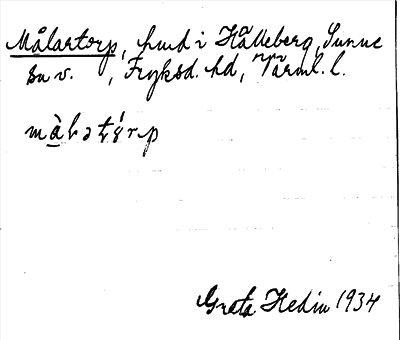 Målartorp, hmd i Hålleberg, Sunne
sn v. , Fryksd. hd, Värml. l.
mà̱lətɷ́rp
Greta Hedin 1934